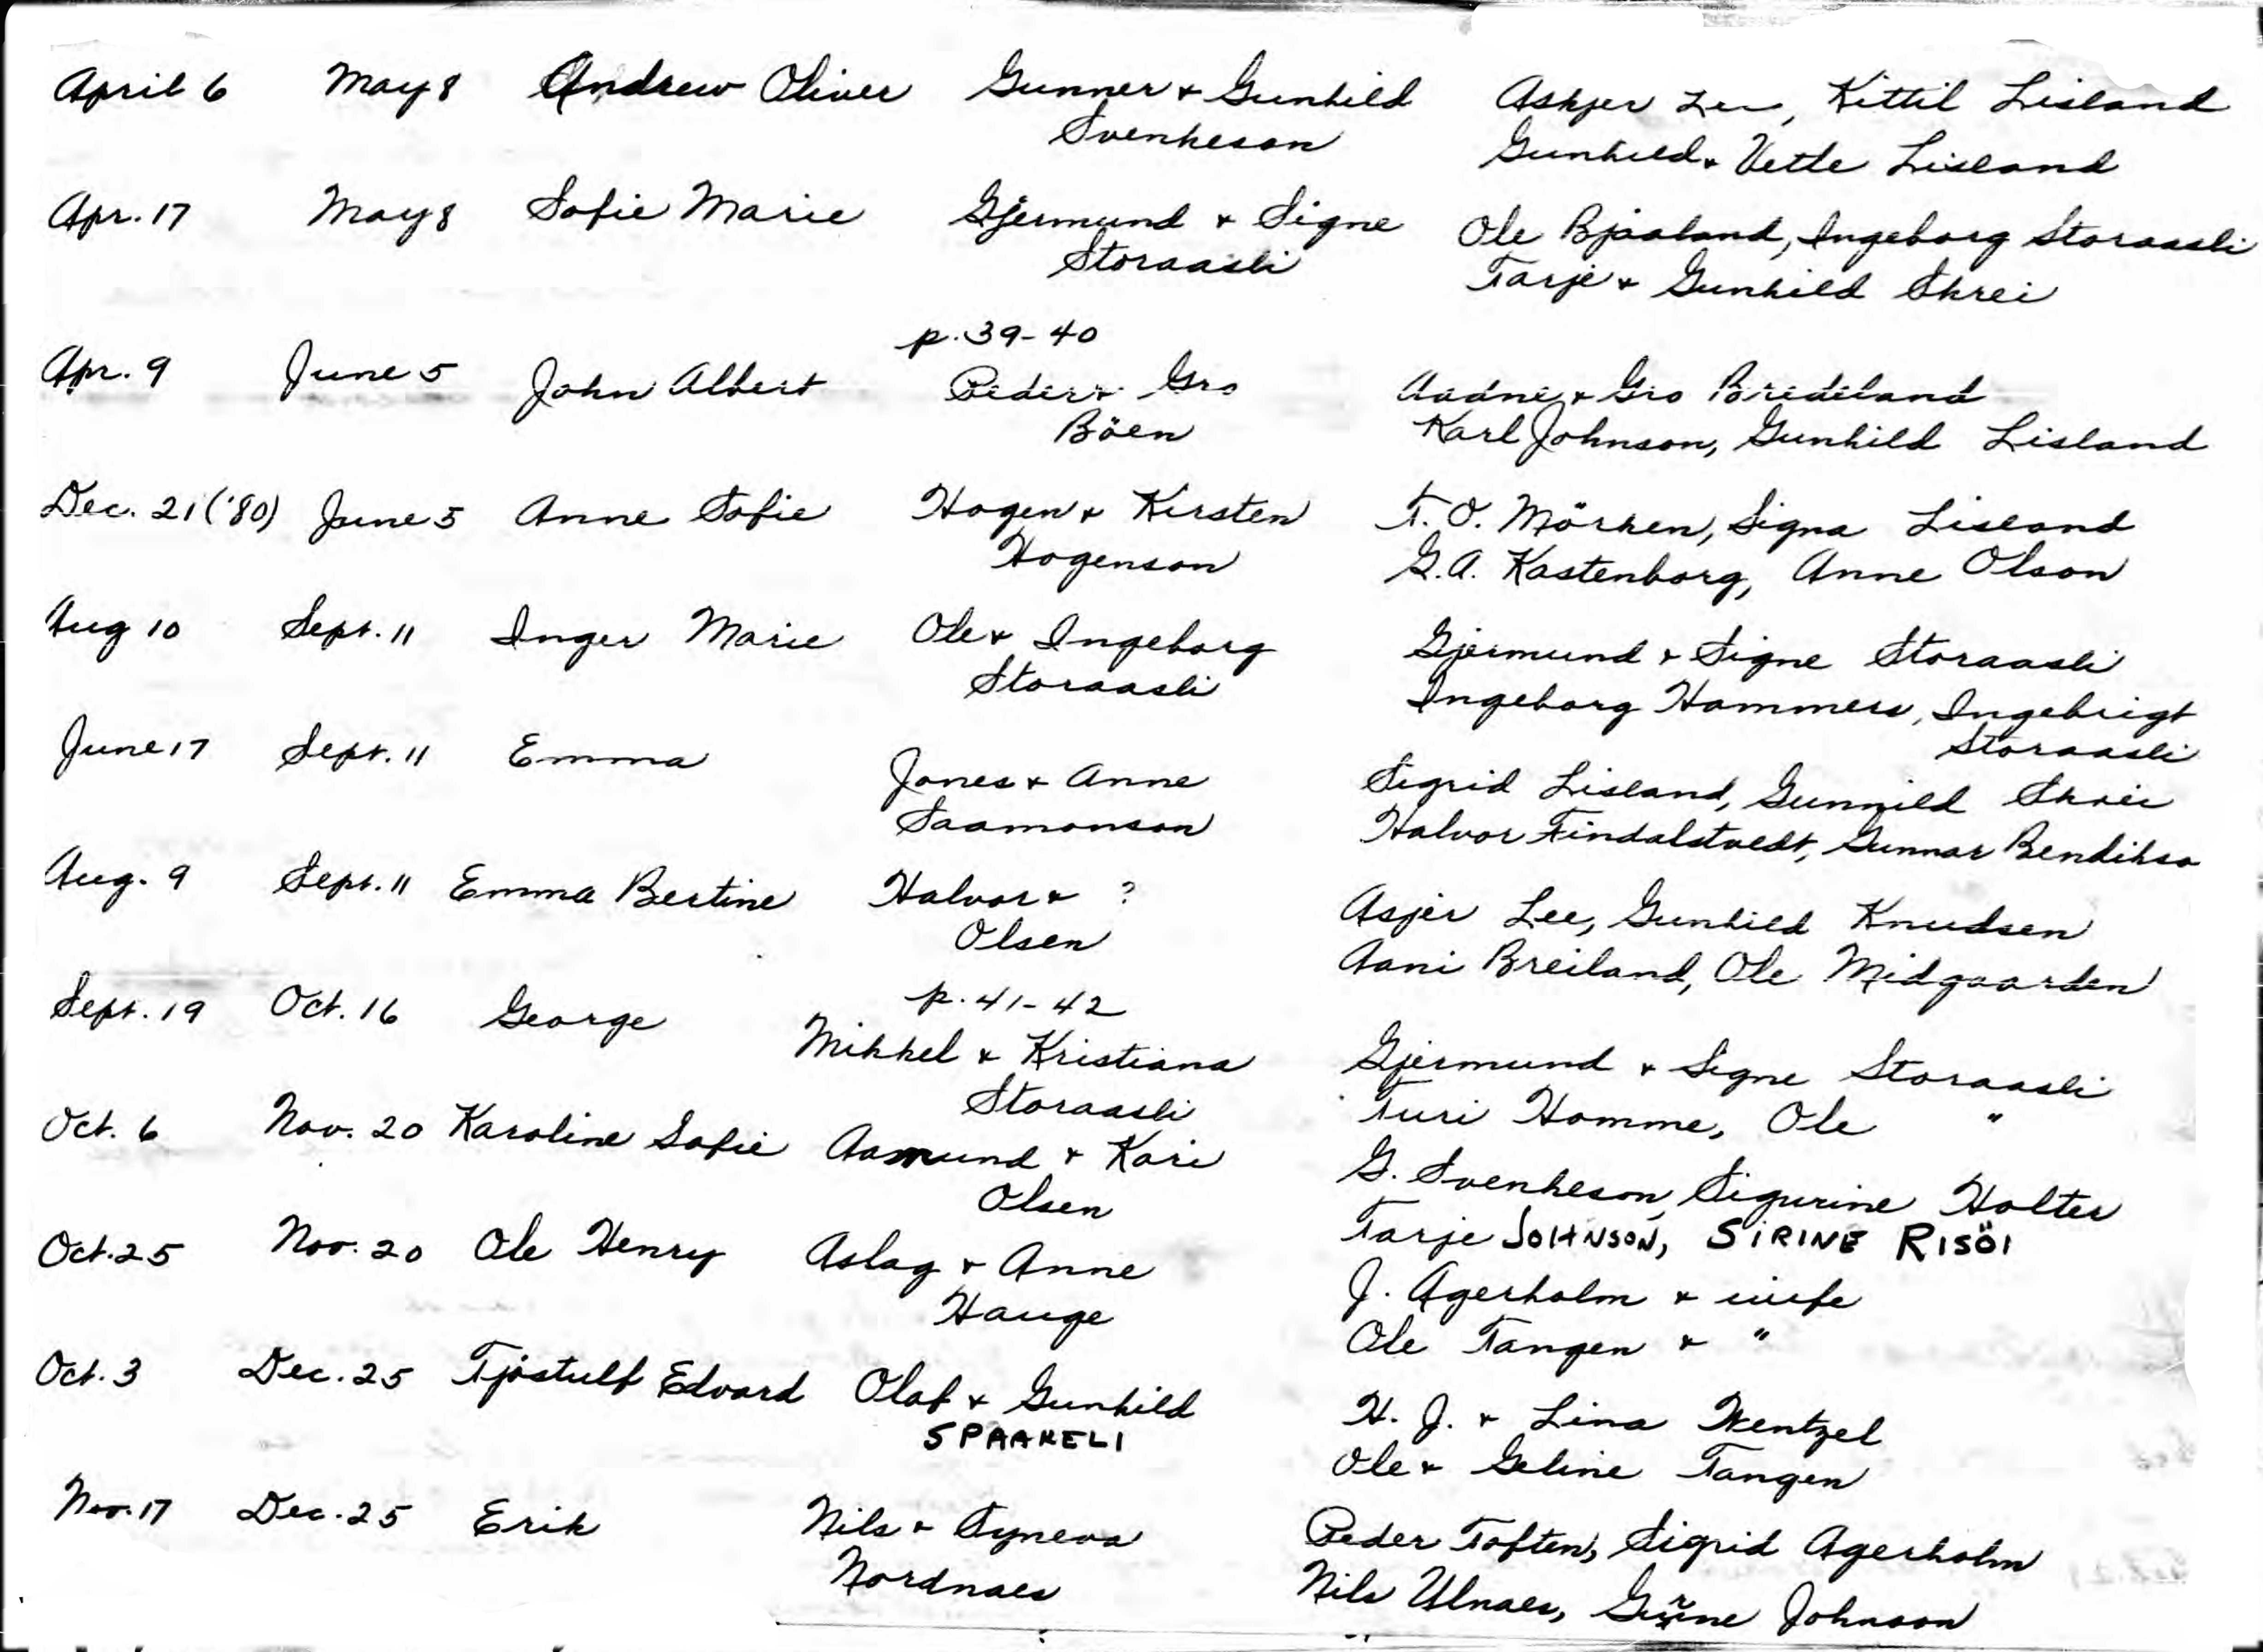 April 6 May 8 Andrew Oliver Gunner & Gunhild Askjer Lee, Kittil Lisland
Svenkeson Gunhild & Vetle Lisland
Apr. 17 May 8 Sofie Marie Gjermund & Signe Ole Bjaaland, Ingeborg Storaasli
Storaasli Tarje & Gunhild Skrei
p. 39-40
Apr. 9 June 5 John Albert Peder & Gro Aadne & Gro Bredeland
Böen Karl Johnson, Gunhild Lisland
Dec. 21 ('80) June 5 Anne Sofie Hogen & Kirsten T. O. Mörken, Signa Lisland
Hogenson G. A. Kastenborg, Anne Olson
Aug 10 Sept. 11 Inger Marie Ole & Ingeborg Gjermund & Signe Storaasli
Storaasli Ingeborg Hommers, Ingebrigt
Storaasli
June 17 Sept. 11 Emma Jones & Anne Sigrid Lisland, Gunnild Skrei
Saamonson Halvor Tindalstvedt, Gunnar Bendikso
Aug. 9 Sept. 11 Emma Bertine Halvor & ? Asjer Lee, Gunhild Knudsen
Olsen Aani Breiland, Ole Midgaarden
p. 41-42
Sept. 19 Oct. 16 George Mikkel & Kristiana Gjermund & Signe Storaasli
Storaasli Turi Homme, Ole "
Oct. 6 Nov. 20 Karoline Sofie Aamund & Kari G. Svenkeson, Sigurine Holter
Olsen Tarje JOHNSON, SIRINE RISÖI
Oct. 25 Nov. 20 Ole Henry Aslag & Anne J. Agerholm & wife
Hauge Ole Tangen & "
Oct. 3 Dec. 25 Tjöstulf Edvard Olaf & Gunhild H. J. & Lina Wentzel
SPAAKELI Ole & Geline Tangen
Nov. 17 Dec. 25 Erik Nils & Syneva Peder Toften, Sigrid Agerholm
Nordnaes Nils Ulnaes, Johnson